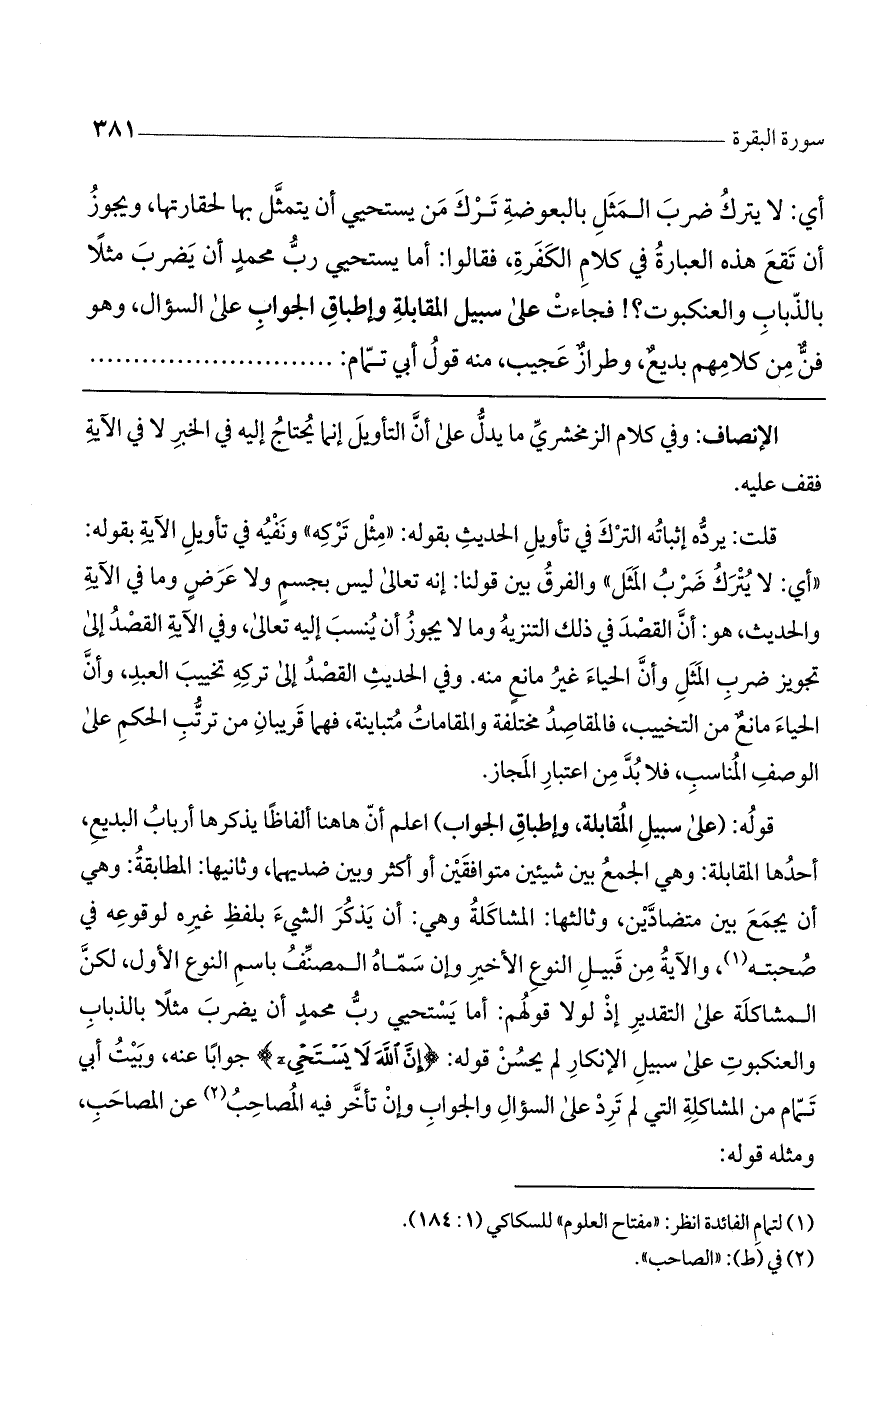 سورة البقرة ٣٨١
أي: لا يتركُ ضربَ المَثَلِ بالبعوضةِ تَرْكَ مَن يستحيي أن يتمثَّل بها لحقارتها، ويجوزُ
أن تَقعَ هذه العبارةُ في كلامِ الكَفَرةِ، فقالوا: أما يستحيي ربُّ محمدٍ أن يَضربَ مثلًا
بالذّبابِ والعنكبوت؟! فجاءتْ علىٰ سبيل المقابلةِ وإطباقِ الجوابِ علىٰ السؤال، وهو
فنٌّ مِن كلامِهم بديعٌ، وطرازٌ عَجيب، منه قولُ أبي تمّام: ............................
الإنصاف: وفي كلام الزمخشريِّ ما يدلُّ علىٰ أنَّ التأويلَ إنما يُحتاجُ إليه في الخبرِ لا في الآيةِ
فقف عليه.
قلت: يردُّه إثباتُه التركَ في تأويلِ الحديثِ بقوله: «مِثْل تَرْكِه» ونَفْيُه في تأويل الآيةِ بقوله:
«أي: لا يُتْرَكُ ضَرْبُ المَثَل» والفرقُ بين قولنا: إنه تعالىٰ ليس بجسمٍ ولا عَرَضٍ وما في الآيةِ
والحديث، هو: أنَّ القصْدَ في ذلك التنزيهُ وما لا يجوزُ أن يُنسبَ إليه تعالىٰ، وفي الآيةِ القصْدُ إلىٰ
تجويز ضربِ المَثَلِ وأنَّ الحياءَ غيرُ مانعٍ منه. وفي الحديثِ القصْدُ إلىٰ تركِهِ تخييبَ العبدِ، وأنَّ
الحياءَ مانعٌ من التخييب، فالمقاصِدُ مختلفة والمقاماتُ مُتباينة، فهما قَريبانِ من ترتُّبِ الحكمِ علىٰ
الوصفِ المُناسبِ، فلا بُدَّ مِن اعتبارِ المَجاز.
قولُه: (علىٰ سبيلِ المُقابلة، وإطباقِ الجواب) اعلم أنّ هاهنا ألفاظًا يذكرها أربابُ البديع،
أحدُها المقابلة: وهي الجمعُ بين شيئين متوافقَيْن أو أكثر وبين ضديهما، وثانيها: المطابقةُ: وهي
أن يجمَعَ بين متضادَّيْن، وثالثها: المشاكَلةُ وهي: أن يَذكُرَ الشيءَ بلفظِ غيرِه لوقوعِه في
صُحبتِه(١)، والآيةُ مِن قَبيلِ النوعِ الأخيرِ وإن سَمّاهُ المصنِّفُ باسمِ النوع الأول، لكنَّ
المشاكلَة علىٰ التقديرِ إذْ لولا قولُهم: أما يَسْتحيي ربُّ محمدٍ أن يضربَ مثلًا بالذبابِ
والعنكبوتِ علىٰ سبيلِ الإنكارِ لم يحسُنْ قوله: ﴿إِنَّ ٱللَّهَ لَا يَسْتَحْىِۦٓ﴾ جوابًا عنه، وبَيْتُ أبي
تمّام من المشاكلةِ التي لم تَرِدْ علىٰ السؤالِ والجوابِ وإنْ تأخَّر فيه المُصاحِبُ(٢) عن المصاحَبِ،
ومثله قوله:
(١) لتمامِ الفائدة انظر: «مفتاح العلوم» للسكاكي (١: ١٨٤).
(٢) في (ط): «الصاحب».